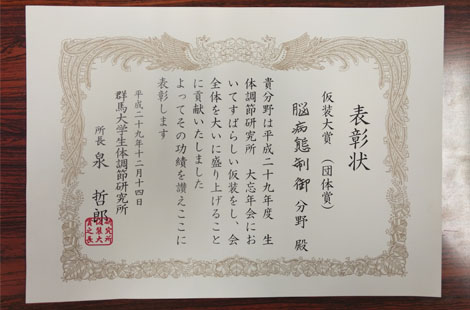 表彰状
仮装大賞 (団体賞)
脳病態制御分野 殿
貴分野は平成二十九年度 生
体調節研究所 大忘年会にお
いてすばらしい仮装をし、会
全体を大いに盛り上げること
に貢献いたしました
よってその功績を讃えここに
表彰します
平成二十九年十二月十四日
群馬大学生体調節研究所
所長 泉 哲郎